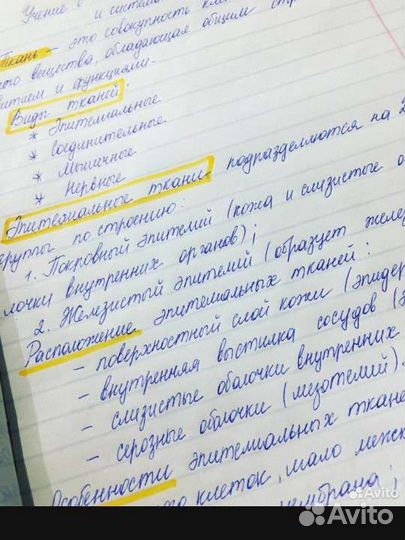 Учение о
и системах
Ткань – это совокупность кле
ного вещества, обладающая общим стр
витием и функциями.
Виды тканей:
* Эпителиальные
* Соединительные
* Мышечные
* Нервные
Эпителиальные ткани подразделяются на 2
группы по строению:
1. Покровный эпителий (кожа и слизистые о
лочки внутренних органов);
2. Железистый эпителий (образует желез
Расположение эпителиальных тканей:
– поверхностный слой кожи (эпидер
– внутренняя выстилка сосудов (э
– слизистые оболочки внутренних
– серозные оболочки (мезотелий).
Особенности эпителиальных ткане
го клеток, мало меж
мембрана;
Avito
Avito